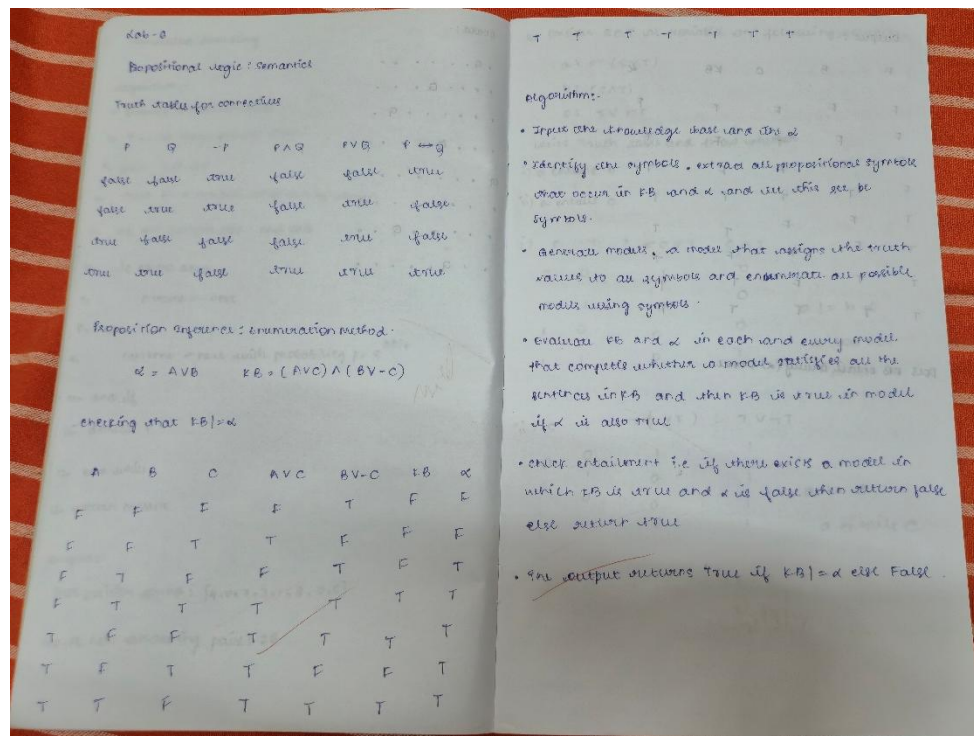 Lab-8
Propositional logic : semantics
Truth tables for connectives
P Q ¬P P∧Q P∨Q P ⇔ Q
false false true false false true
false true true false true false
true false false false true false
true true false true true true
Proposition inference : Enumeration method.
α = A∨B KB = (A∨C) ∧ (B∨¬C)
checking that KB|=α
A B C A∨C B∨¬C KB α
F F F F T F F
F F T T F F F
F T F F T F T
F T T T T T T
T F F T T T T
T F T T F F T
T T F T T T T
T T T T T T T
Algorithm:-
• Input the knowledge base and the α
• Identify the symbols. extract all propositional symbols
that occur in KB and α and let this set be
symbols.
• Generate models, a model that assigns the truth
values to all symbols and enumerate all possible
models using symbols.
• Evaluate KB and α in each and every model
that completes whether a model satisfies all the
sentences in KB and then KB is true in model
if α is also true
• check entailment i.e if there exists a model in
which KB is true and α is false then return false
else return true
• The output returns True if KB|=α else False.